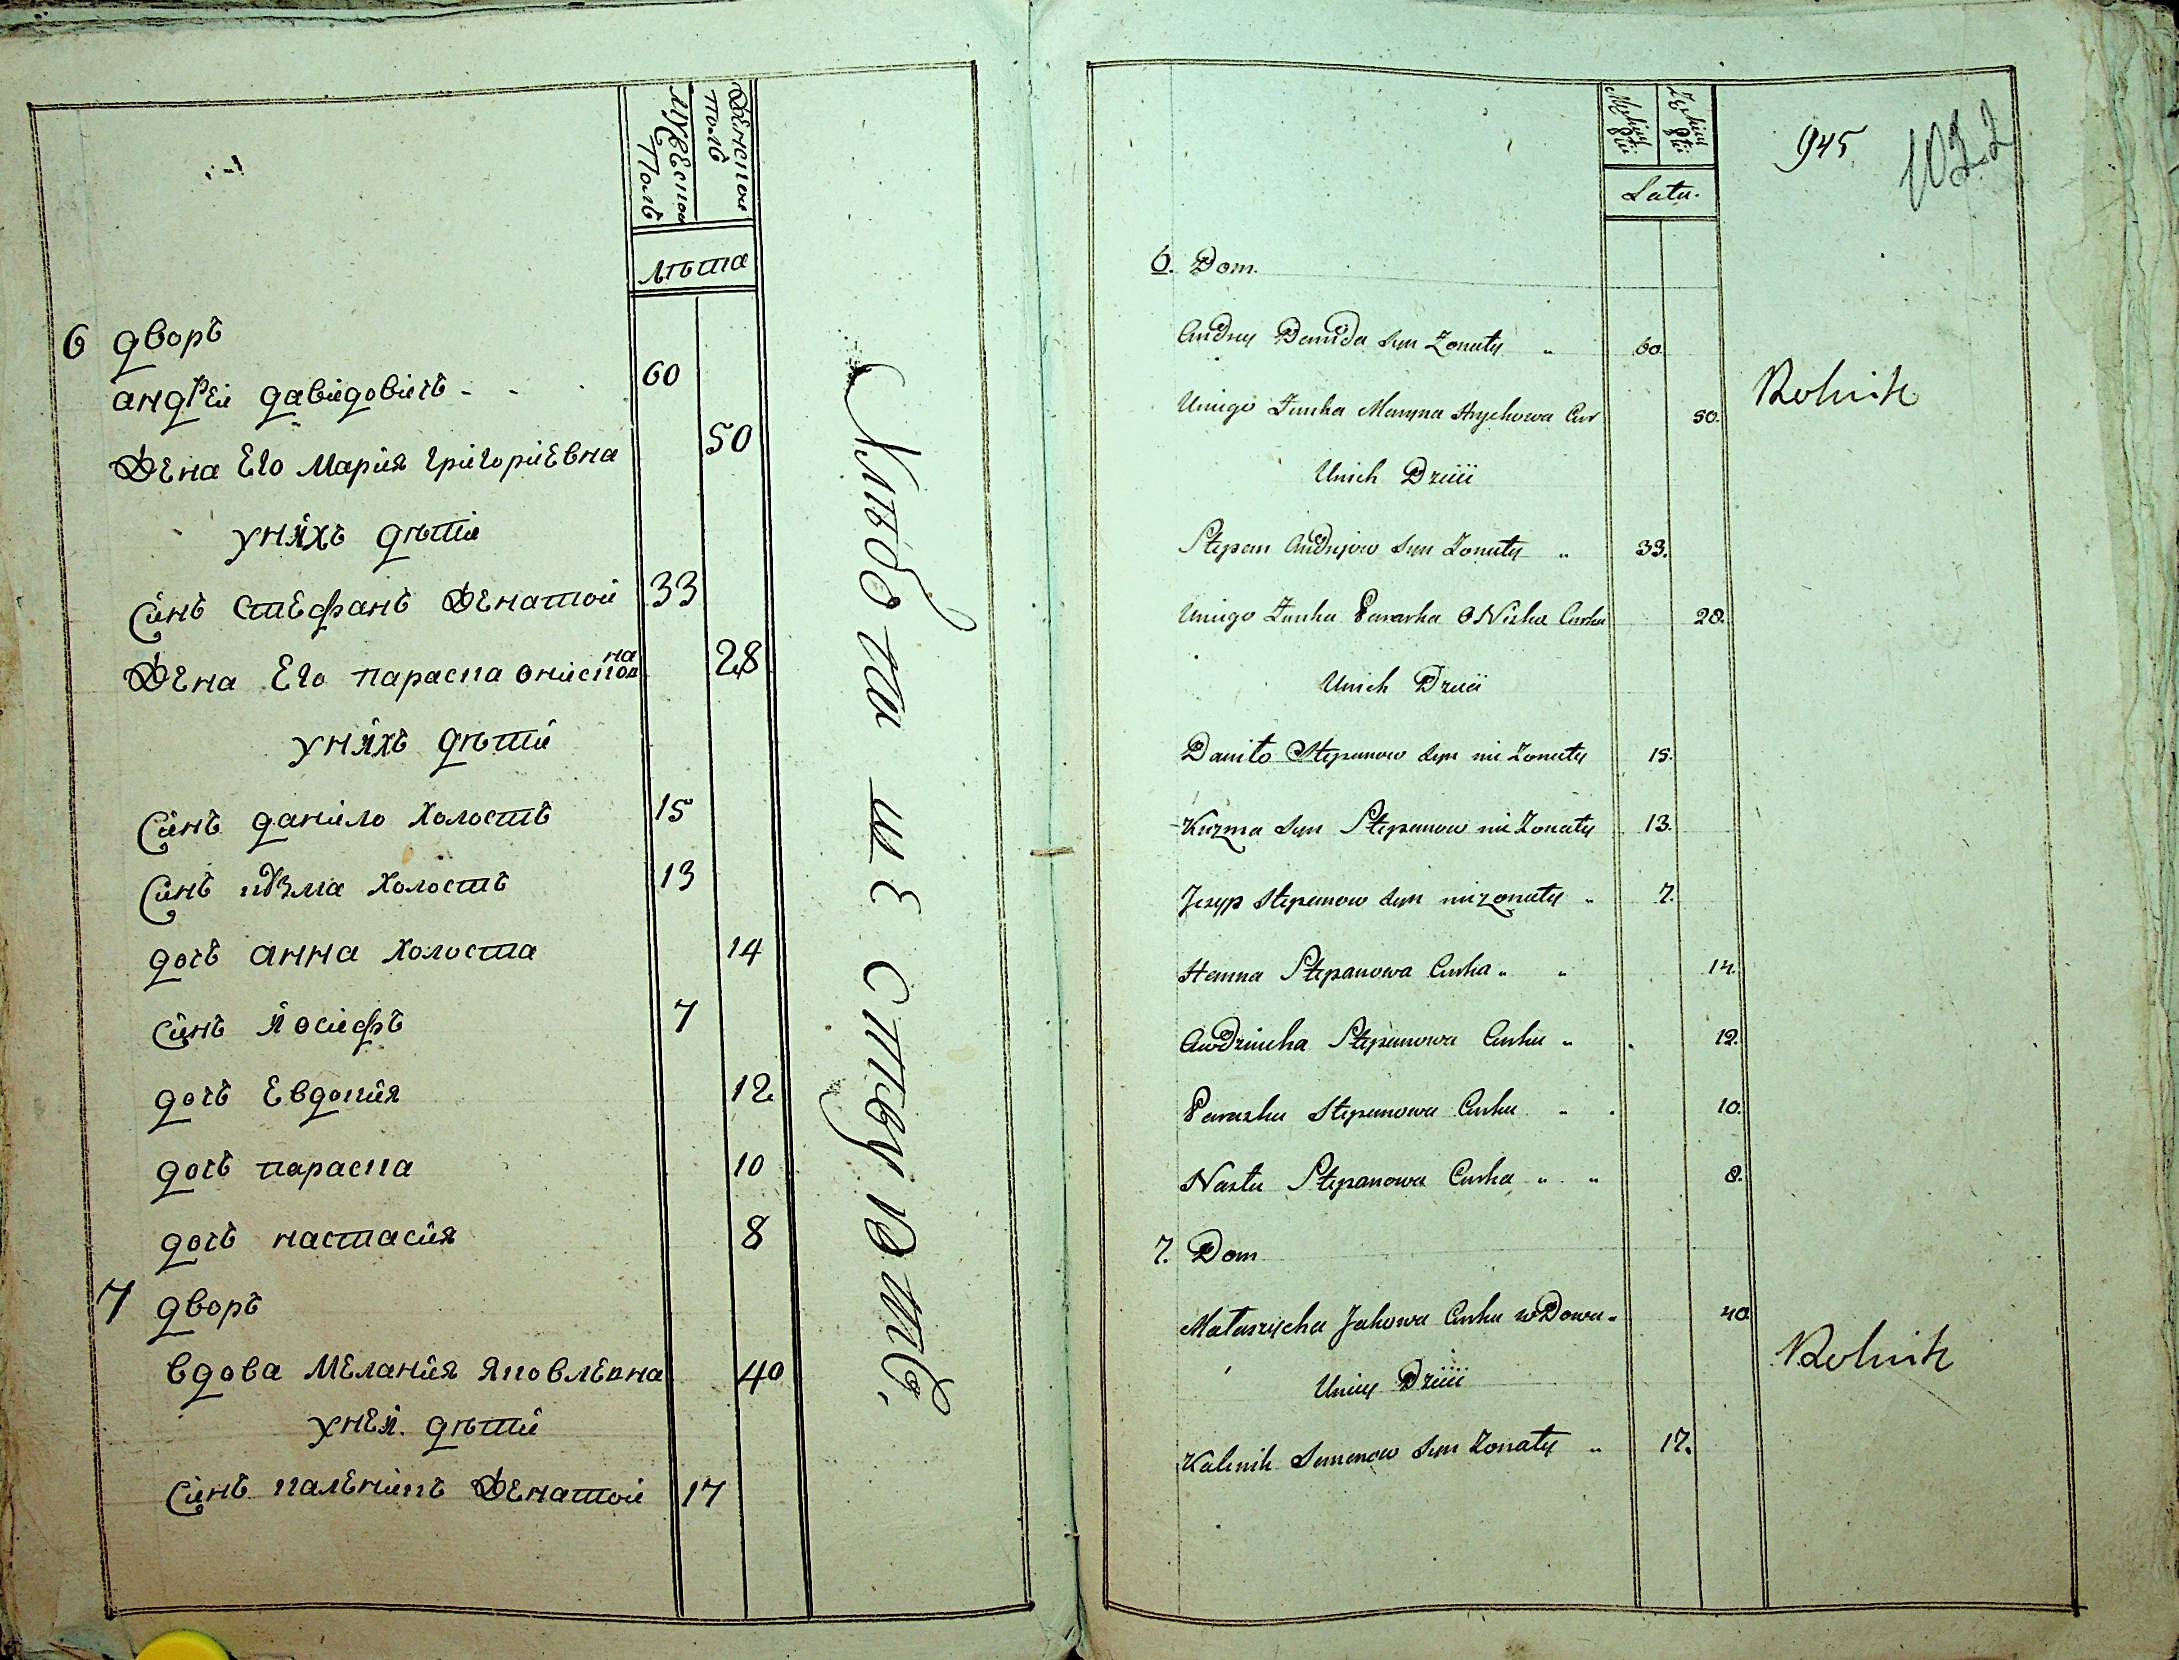 Мужеског Полъ
Женског полъ
лѣта
6 дворъ
андреи давидовичъ 60
Жена Его Мария григориевна 50
унихъ дѣти
Синъ стефанъ Женатой 33
Жена Его параска онисковна 28
унихъ дѣти
Синъ данило холостъ 15
Синъ кузма холостъ 13
дочъ анна холоста 14
Синъ иосифъ 7
дочъ Евдокия 12
дочъ параска 10
дочъ настасия 8
7 дворъ
вдова Мелания яковлевна 40
унеи дѣти
Синъ каленикъ Женатой 17
Хлѣбопашествуютъ
945
1022
Latu.
6. Dom.
Andrey Demida syn Zonaty 60.
Uniego Zunka Maryna Hrychowa Cur 50.
Unich Dzieii
Stepan Andryiow syn Zonaty 33.
Uniego Zunka Paraska ONiska Curka 28.
Unich Dzieii
Daniło Stepanow syn nie Zonaty 15.
Kuzma syn Stepanow nie Zonaty 13.
Jezyp Stepanow syn niezonaty 7.
Hanna Stepanowa Curka 14.
Awdziucha Stepanowa Curka 12.
Paraska Stepanowa Curka 10.
Nasta Stepanowa Curka 8.
Rolnik
7. Dom
Jakowa Curka wDowa 40
Uniey Dzieii
Kalinik Semenow syn Zonaty 17.
Rolnik